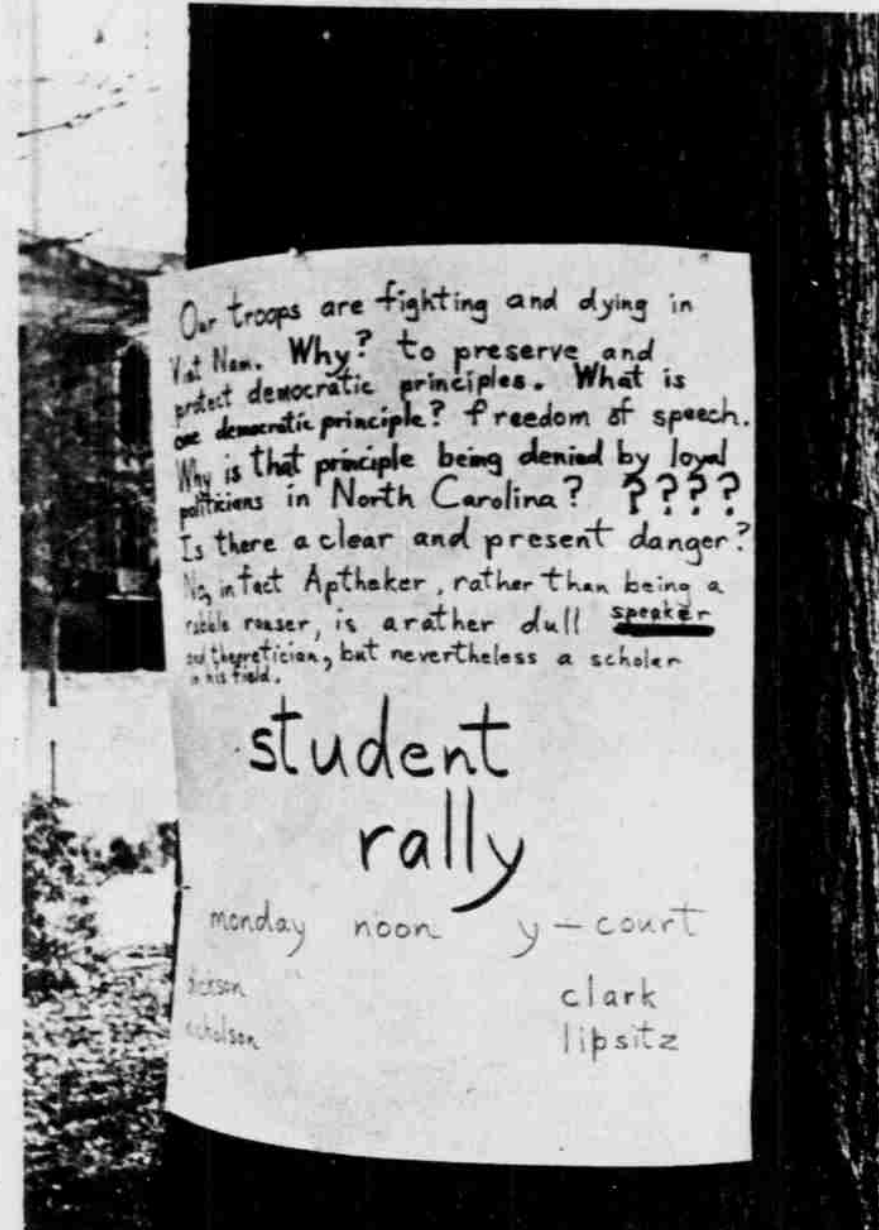 Our troops are fighting and dying in
Viet Nam. Why? to preserve and
protect democratic principles. What is
one democratic principle? freedom of speech.
Why is that principle being denied by loyal
politicians in North Carolina? ????
Is there a clear and present danger?
No, in fact Aptheker, rather than being a
rabble rouser, is a rather dull speaker
and theoretician, but nevertheless a scholer
in his field.
student
rally
monday noon y-court
clark
lipsitz